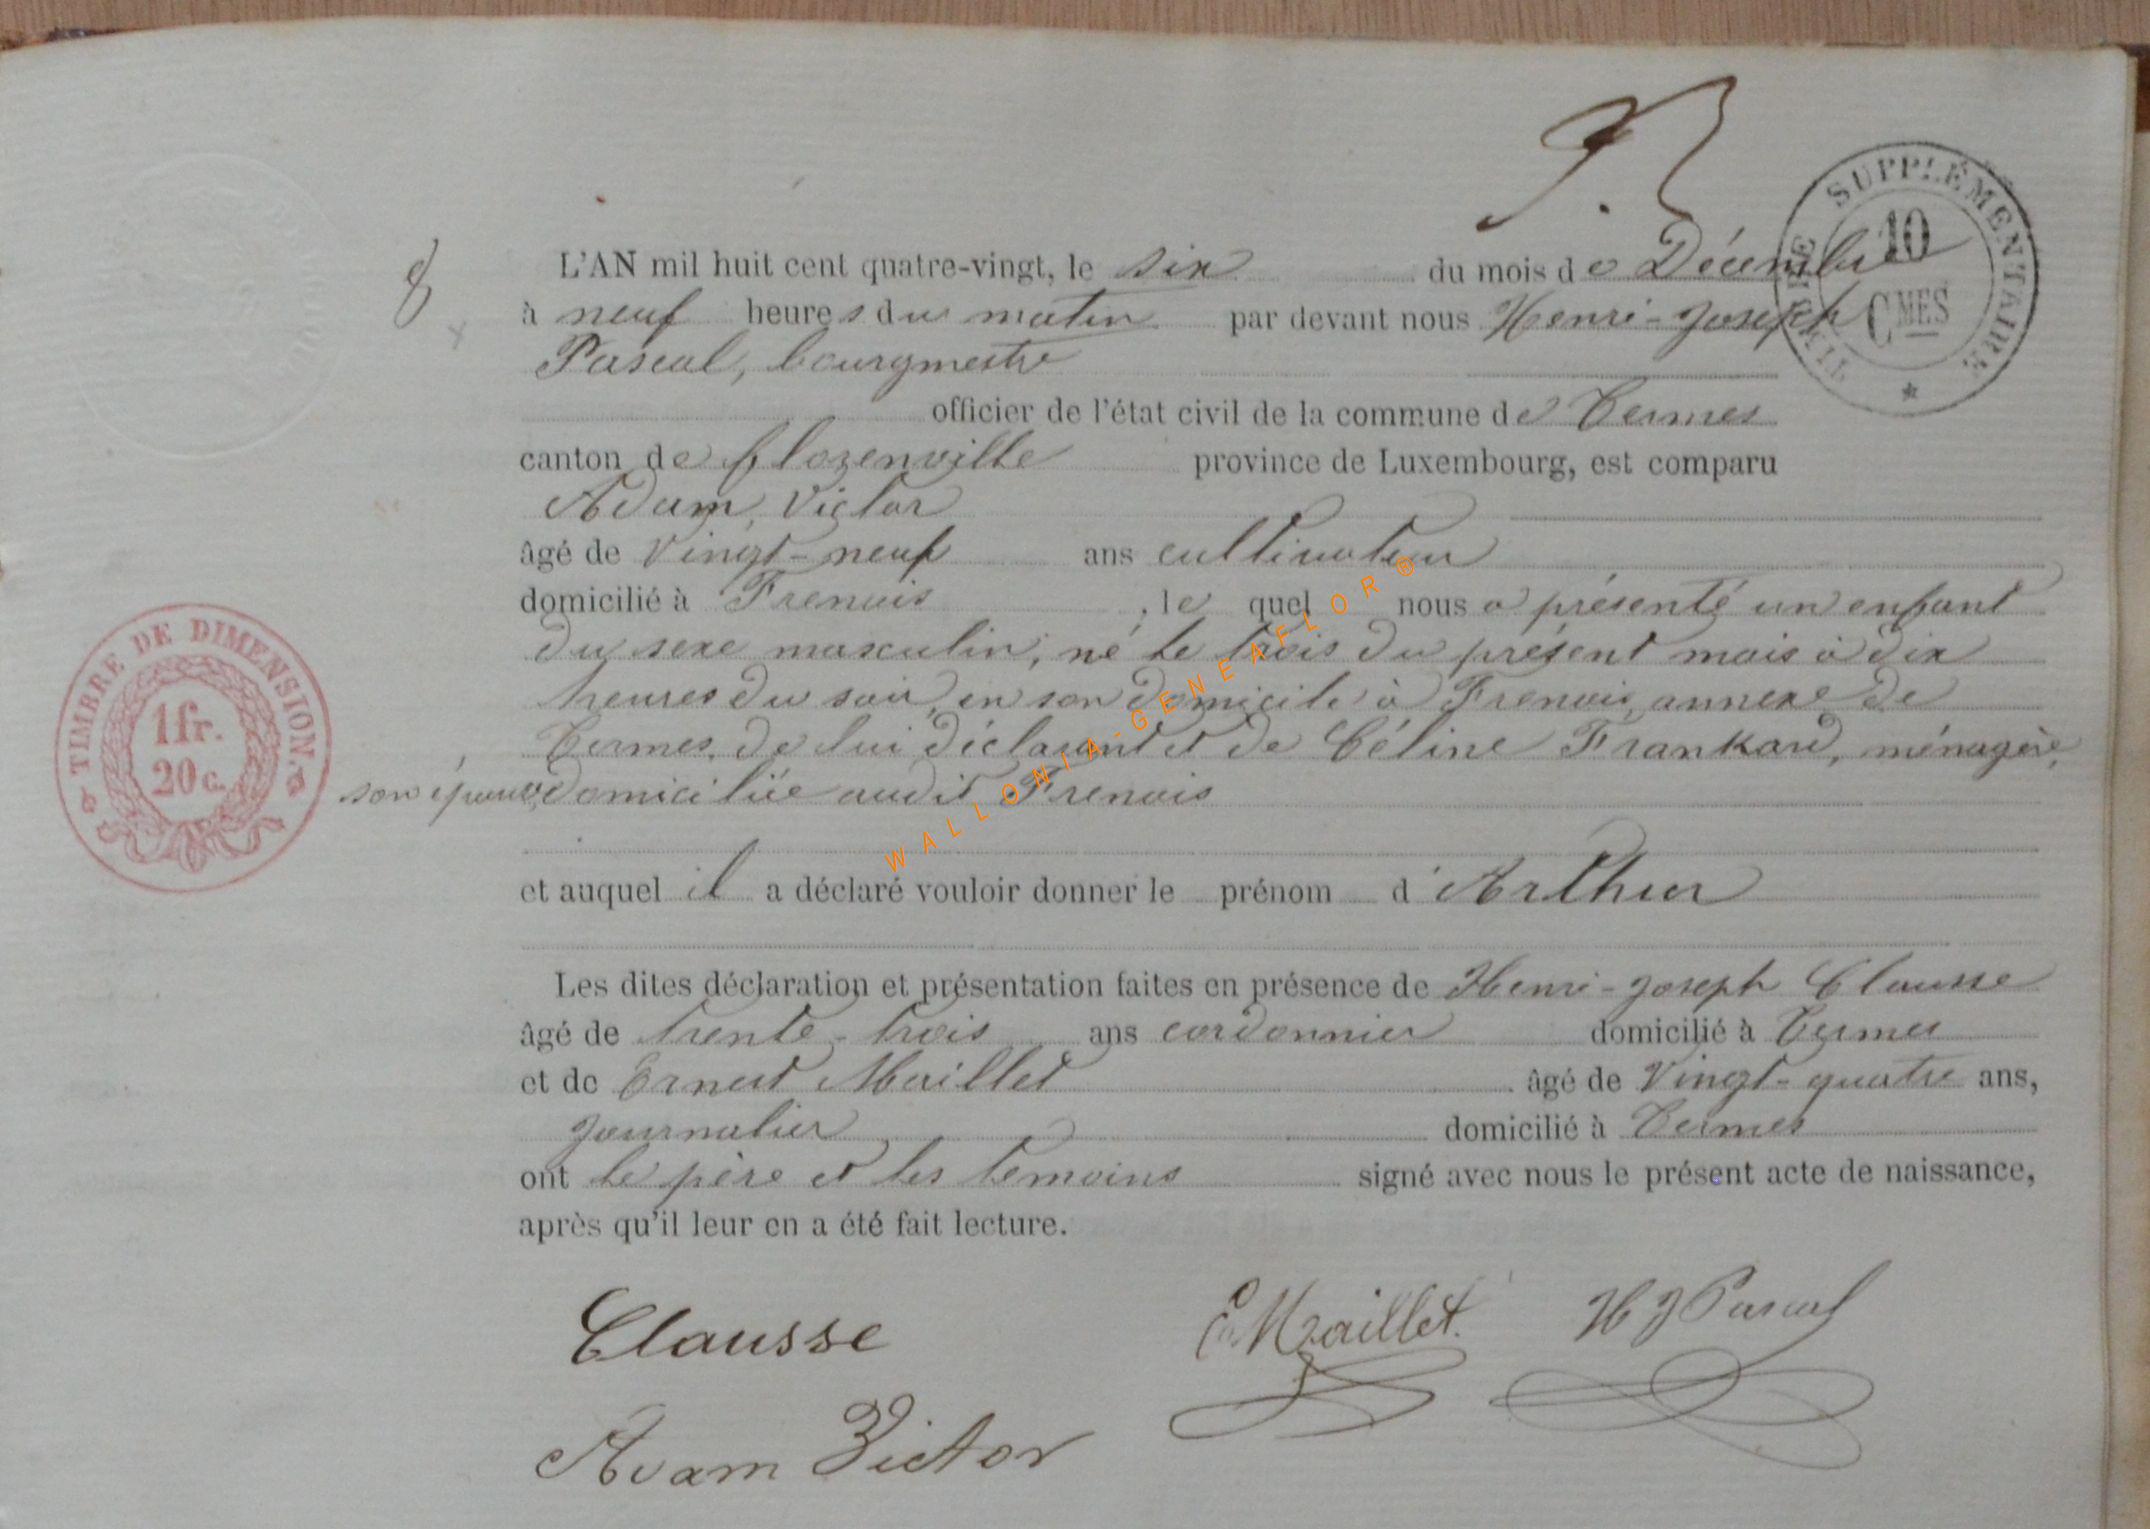 SUPPLÉMENTAIRE
TIMBRE
10
CMES
8
L'AN mil huit cent quatre-vingt, le six du mois de Décembre
à neuf heures du matin par devant nous Henri-Joseph
Pascal, bourgmestre
officier de l'état civil de la commune de Termes
canton de florenville province de Luxembourg, est comparu
Adam, Victor
âgé de Vingt-neuf ans cultivateur
domicilié à Frenois, le quel nous a présenté un enfant
du sexe masculin, né le trois du présent mois à dix
heures du soir, en son domicile à Frenois, annexe de
Termes, de lui déclarant et de Céline Frankard, ménagère,
son épouse, domiciliée audit Frenois
et auquel il a déclaré vouloir donner le prénom d'Arthur
Les dites déclaration et présentation faites en présence de Henri-Joseph Clausse
âgé de trente-trois ans cordonnier domicilié à Termes
et de Ernest Maillet âgé de Vingt-quatre ans,
journalier domicilié à Termes
ont le père et les temoins signé avec nous le présent acte de naissance,
après qu'il leur en a été fait lecture.
Clausse E. Maillet. H J Pascal
Adam Victor
TIMBRE DE DIMENSION.
1fr.
20 c.
WALLONIA-GENEAFLOR®